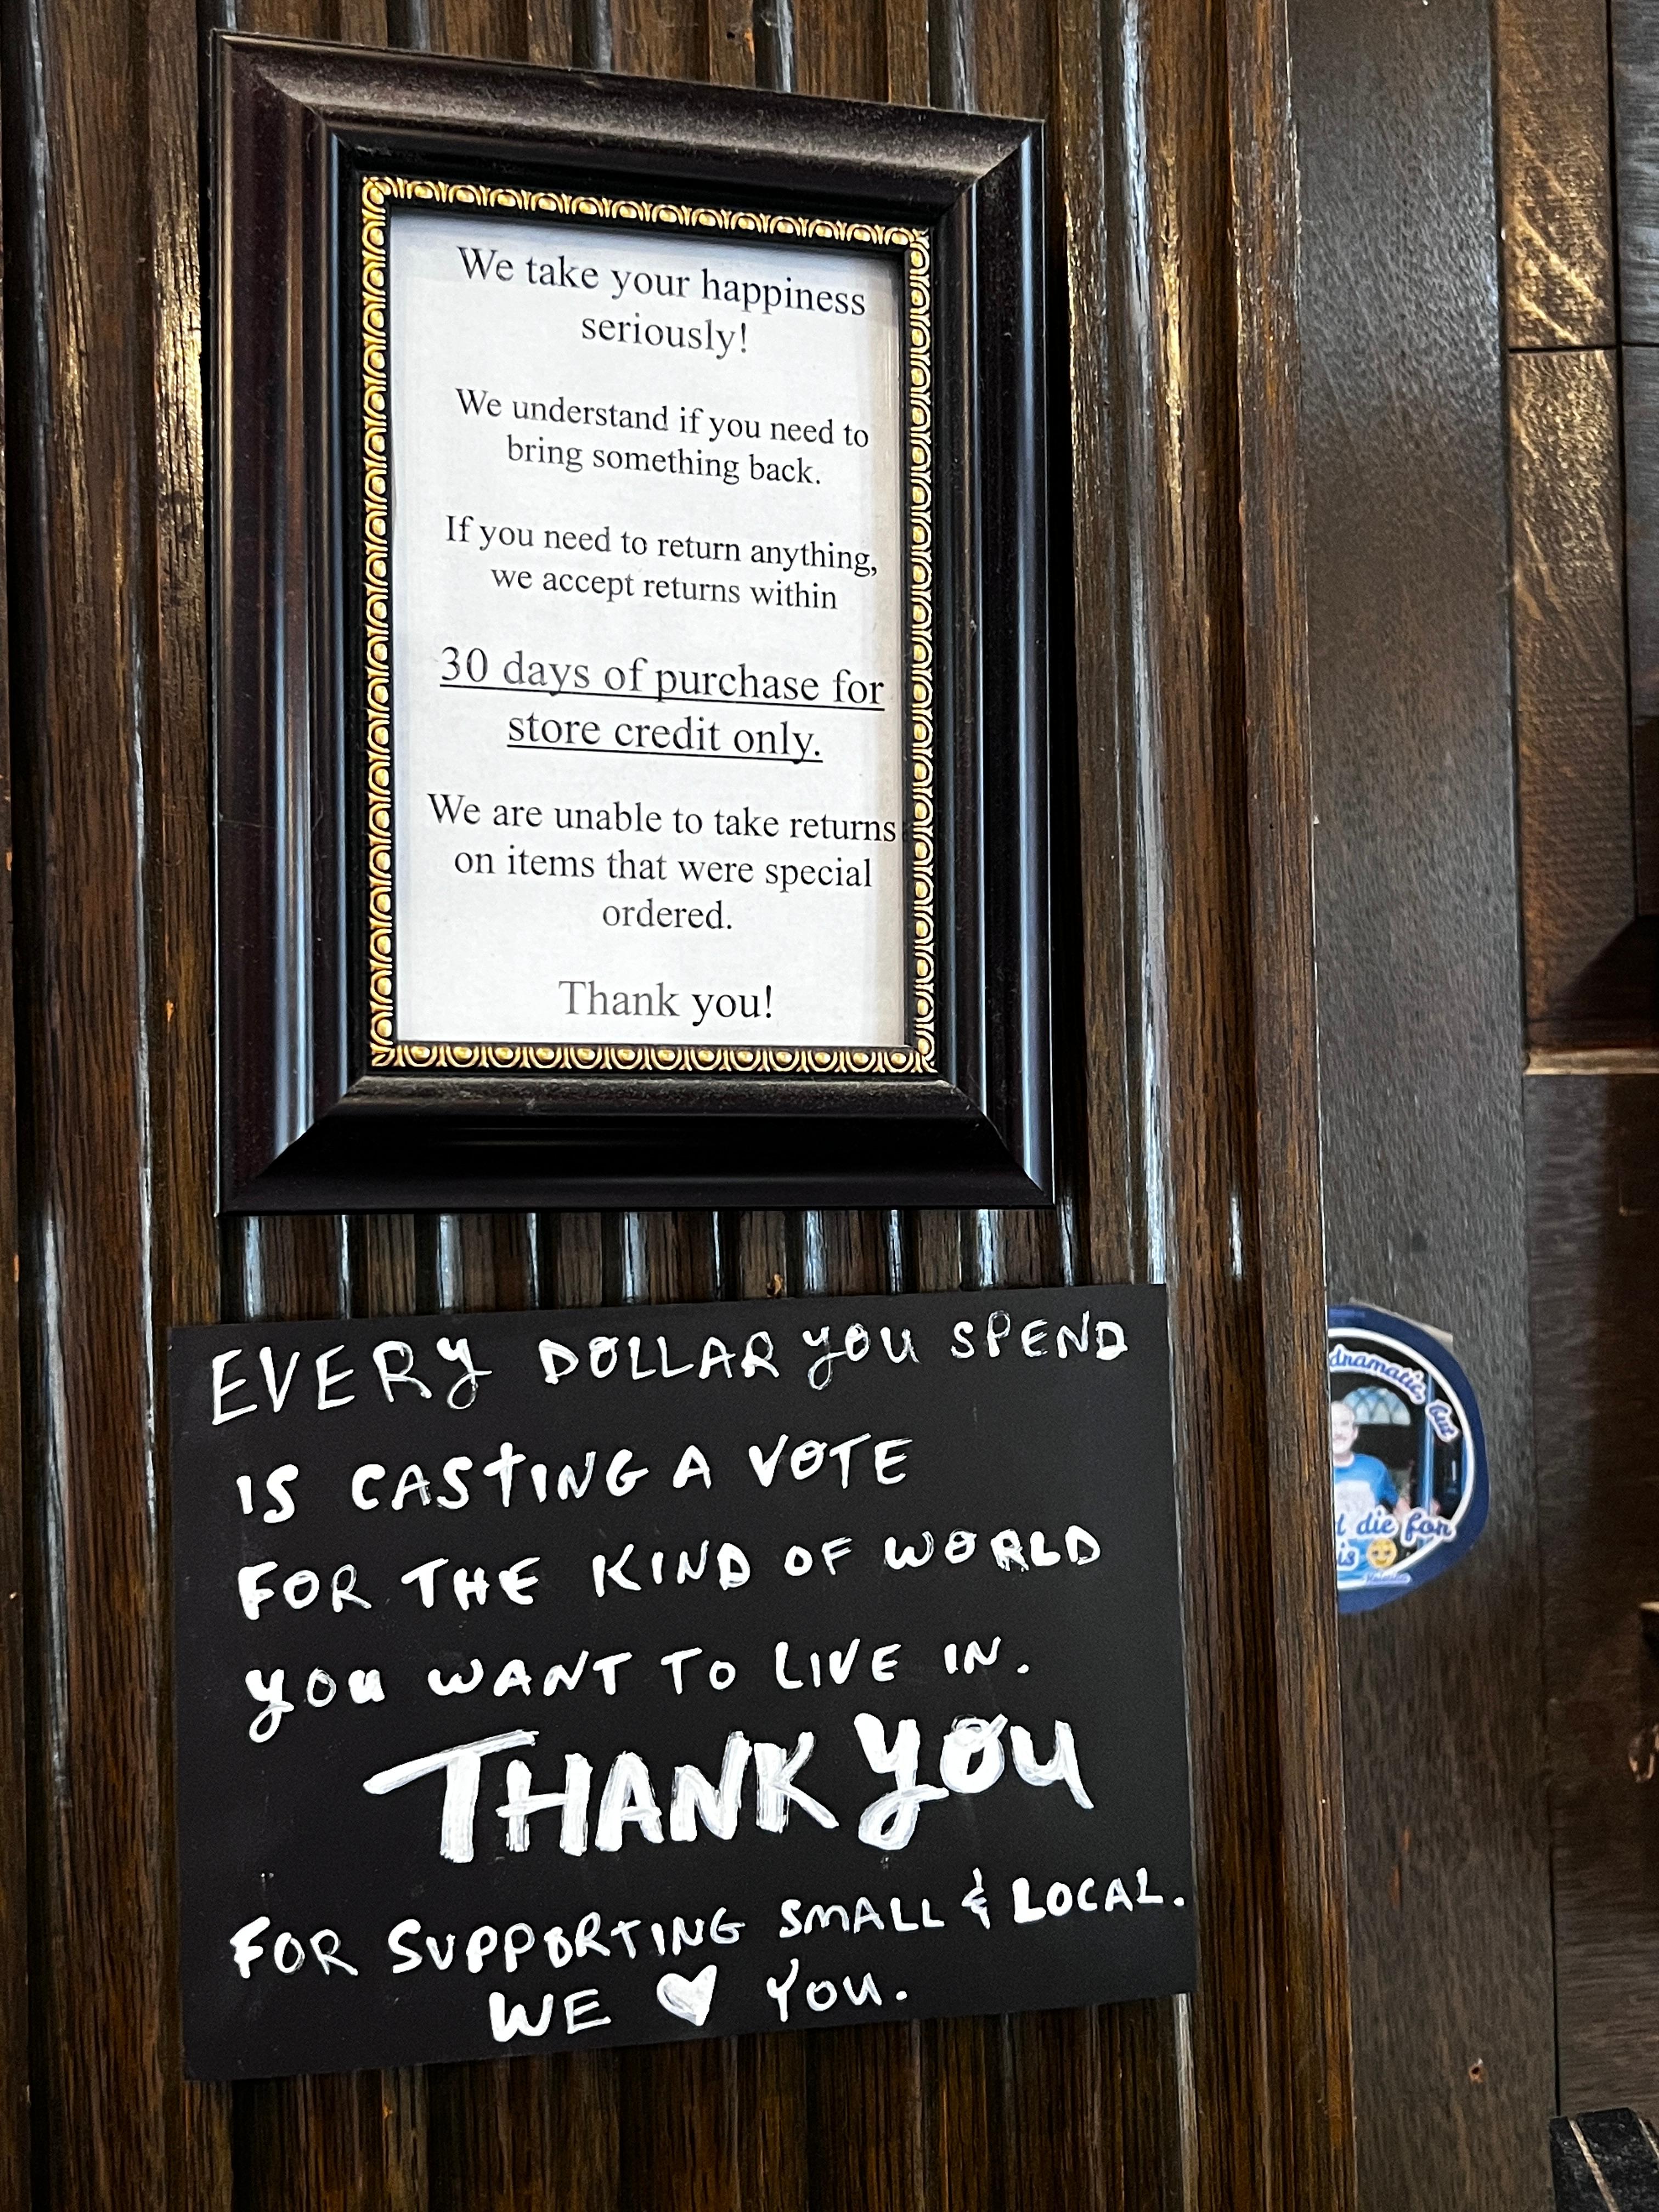 We take your happiness
seriously!
We understand if you need to
bring something back.
If you need to return anything,
we accept returns within
30 days of purchase for
store credit only.
We are unable to take returns
on items that were special
ordered.
Thank you!
EVERY DOLLAR YOU SPEND
IS CASTING A VOTE
FOR THE KIND OF WORLD
YOU WANT TO LIVE IN.
THANK YOU
FOR SUPPORTING SMALL & LOCAL.
WE ♥ YOU.
dramatic, but
die for